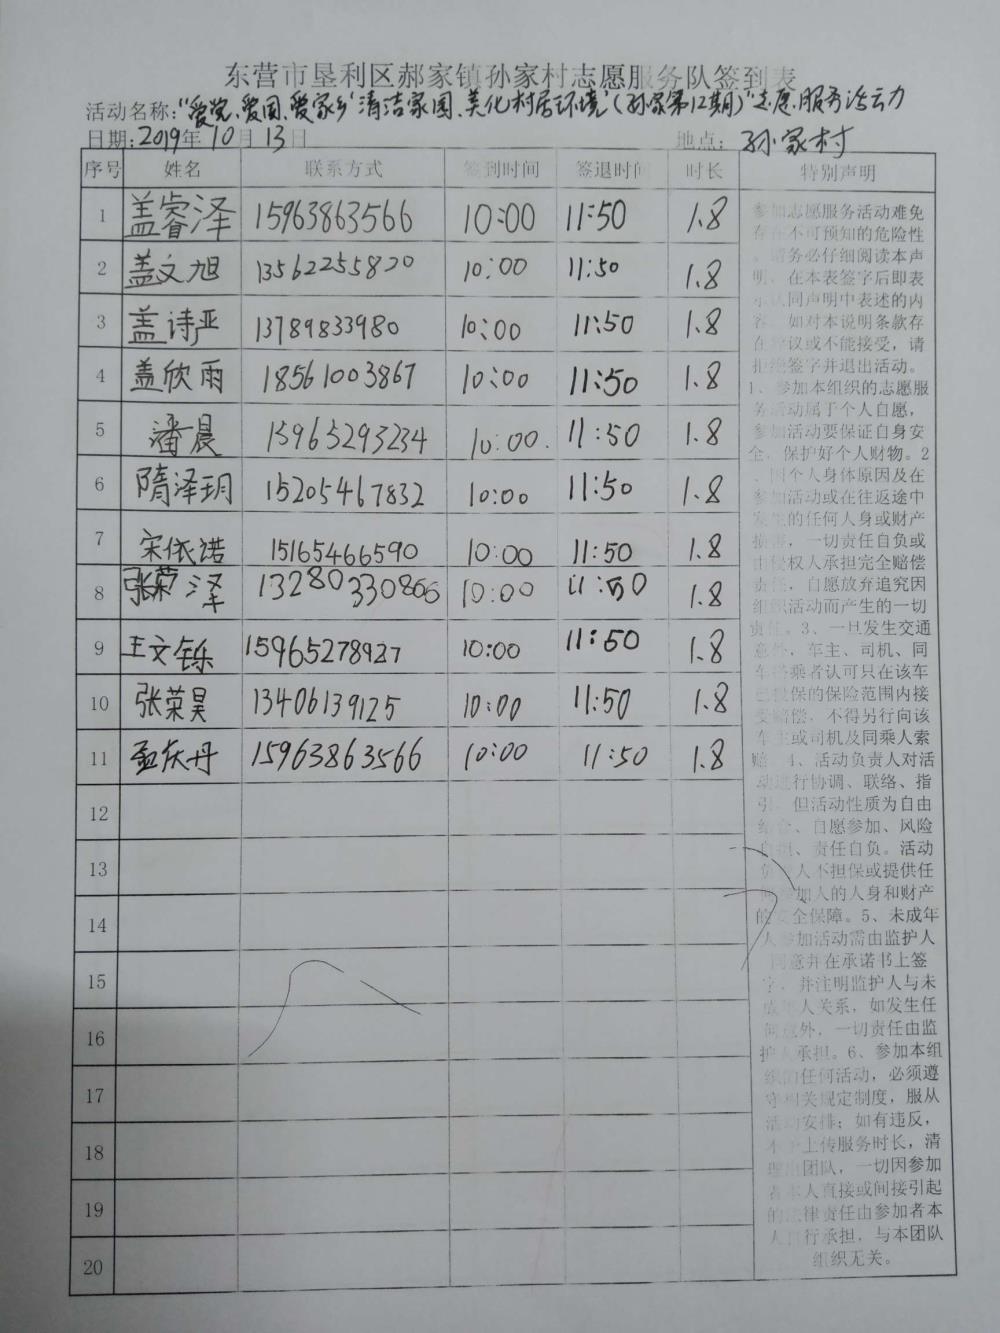 东营市垦利区郝家镇孙家村志愿服务队签到表
活动名称:"爱党、爱国、爱家乡"清洁家园、美化村居环境"(孙家第12期)"志愿服务活动
日期:2019年10月13日 地点:孙家村
序号 姓名 联系方式 签到时间 签退时间 时长 特别声明
1 盖睿泽 15963863566 10:00 11:50 1.8
2 盖文旭 13562255820 10:00 11:50 1.8
3 盖诗亚 13789833980 10:00 11:50 1.8
4 盖欣雨 18561003867 10:00 11:50 1.8
5 潘晨 15965293234 10:00. 11:50 1.8
6 隋泽玥 15205467832 10:00 11:50 1.8
7 宋依诺 15165466590 10:00 11:50 1.8
8 张荣泽 13280330866 10:00 11:50 1.8
9 王文铄 15965278927 10:00 11:50 1.8
10 张荣昊 13406139125 10:00 11:50 1.8
11 孟庆丹 15963863566 10:00 11:50 1.8
12
13
14
15
16
17
18
19
20
参加志愿服务活动难免
存在不可预知的危险性
。请务必仔细阅读本声
明，在本表签字后即表
示认同声明中表述的内
容。如对本说明条款存
在异议或不能接受，请
拒绝签字并退出活动。
1、参加本组织的志愿服
务活动属于个人自愿，
参加活动要保证自身安
全，保护好个人财物。2
、因个人身体原因及在
参加活动或在往返途中
发生的任何人身或财产
损害，一切责任自负或
由侵权人承担完全赔偿
责任，自愿放弃追究因
组织活动而产生的一切
责任。3、一旦发生交通
意外，车主、司机、同
车搭乘者认可只在该车
已投保的保险范围内接
受赔偿，不得另行向该
车主或司机及同乘人索
赔。4、活动负责人对活
动进行协调、联络、指
引，但活动性质为自由
结合、自愿参加、风险
自担、责任自负。活动
负责人不担保或提供任
何参加人的人身和财产
的安全保障。5、未成年
人参加活动需由监护人
同意并在承诺书上签
字，并注明监护人与未
成年人关系，如发生任
何意外，一切责任由监
护人承担。6、参加本组
织的任何活动，必须遵
守相关规定制度，服从
活动安排；如有违反，
不予上传服务时长，清
理出团队，一切因参加
者本人直接或间接引起
的法律责任由参加者本
人自行承担，与本团队
组织无关。